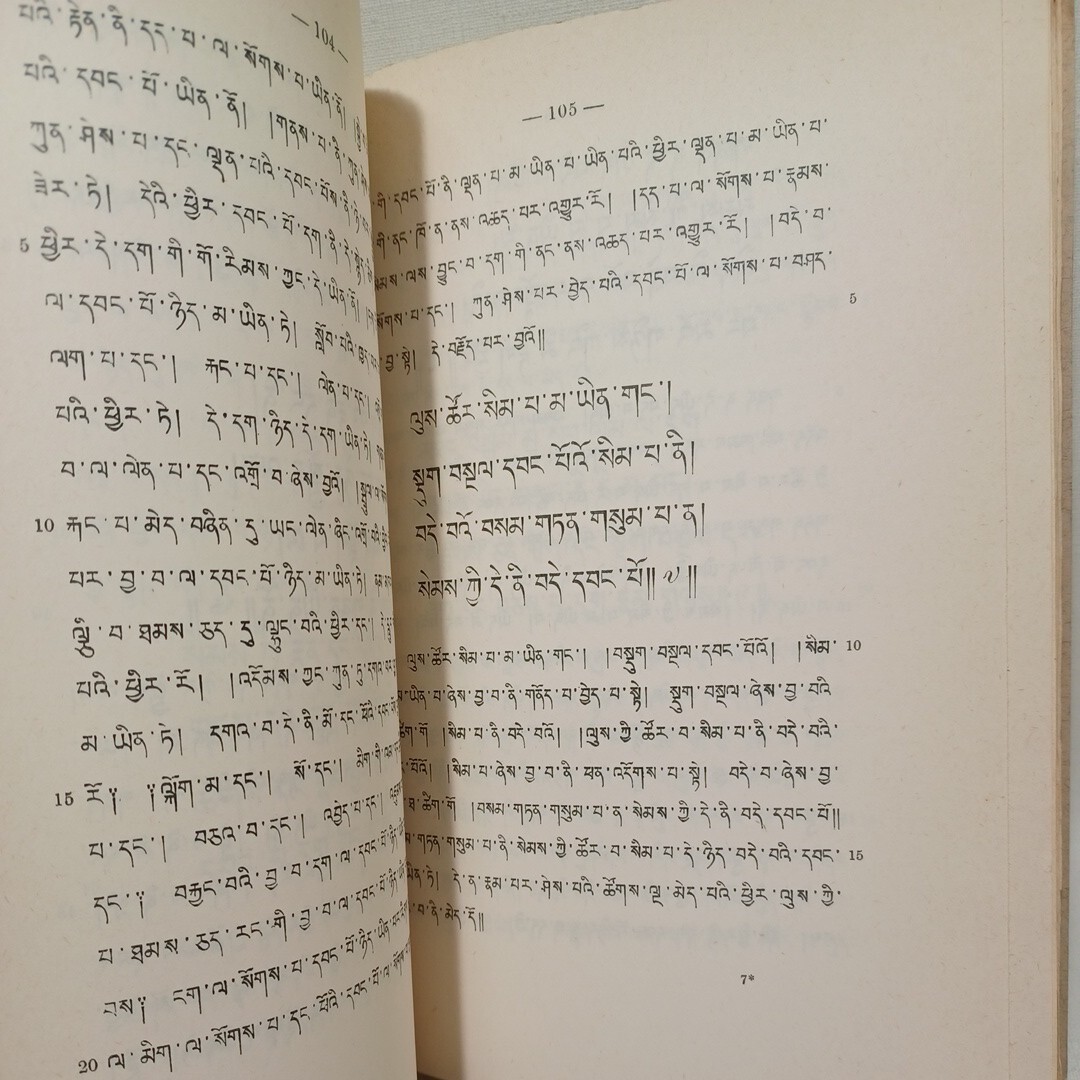 —104—
པའི་རྟེན་ནི་དད་པ་ལ་སོགས་པ་ཡིན་ནོ།
པའི་དབང་པོ་ཡིན་ནོ། །གནས་པ་ནི་ཀུན་
ཀུན་ཤེས་པ་དང་ལྡན་པའི་དབང་པོས་ནི་
ཟེར་ཏེ། དེའི་ཕྱིར་དབང་པོ་དག་ནི་དེ་
5 ཕྱིར་དེ་དག་གི་གོ་རིམས་ཀྱང་དེ་ཡིན་ནོ།
ལ་དབང་པོ་ཉིད་མ་ཡིན་ཏེ། སློབ་པའི་
ལག་པ་དང་། རྐང་པ་དང་། ལེན་པ་དང་།
པའི་ཕྱིར་ཏེ། དེ་དག་ཉིད་དེ་དག་ཡིན་ཏེ།
བ་ལ་ལེན་པ་དང་འགྲོ་བ་ཞེས་བྱའོ། །སྦྲུལ་ལ་
10 རྐང་པ་མེད་བཞིན་དུ་ཡང་ལེན་ཞིང་འགྲོ་བའི་
པར་བྱ་བ་ལ་དབང་པོ་ཉིད་མ་ཡིན་ཏེ།
ལྟུང་བ་ཐམས་ཅད་དུ་ལྟུང་བའི་ཕྱིར་དང་།
པའི་ཕྱིར་རོ། །འདོམས་ཀྱང་ཀུན་ཏུ་དགའ་བའི་
མ་ཡིན་ཏེ། དགའ་བ་དེ་ནི་མོ་དང་ཕོའི་དབང་པོ་
15 རོ༔ ༔ལྐོག་མ་དང་། སོ་དང་། མིག་གི་
པ་དང་། བཅའ་བ་དང་། འབྱེད་པ་དང་།
དང་༔ བརྐྱང་བའི་བྱ་བ་དག་ལ་དབང་པོ་ཉིད་
པ་ཐམས་ཅད་རང་གི་བྱ་བ་ལ་དབང་པོ་ཉིད་
བས༔ ངག་ལ་སོགས་པ་དབང་པོ་ཉིད་ཡིན་པར་
20 ལ་མིག་ལ་སོགས་པ་དང་པོའི་དབང་པོ་ལ་
— 105 —
གི་དབང་པོ་ནི་ལྡན་པ་མ་ཡིན་པ་ཡིན་པའི་ཕྱིར་ལྡན་པ་མ་ཡིན་པ་
གི་ནང་ཁོ་ན་ནས་འཆད་པར་འགྱུར་རོ། །དད་པ་ལ་སོགས་པ་རྣམས་
སེམས་ལས་བྱུང་བ་དག་གི་ནང་ནས་འཆད་པར་འགྱུར་རོ། །བདེ་བ་
སོགས་པ་དང་། ཀུན་ཤེས་པར་བྱེད་པའི་དབང་པོ་ལ་སོགས་པ་བཤད་ 5
བྱ་སྟེ། དེ་བརྗོད་པར་བྱའོ༎
ལུས་ཚོར་སིམ་པ་མ་ཡིན་གང་།
སྡུག་བསྔལ་དབང་པོའོ་སིམ་པ་ནི།
བདེ་བའོ་བསམ་གཏན་གསུམ་པ་ན།
སེམས་ཀྱི་དེ་ནི་བདེ་དབང་པོ༎ ༧ ༎
ལུས་ཚོར་སིམ་པ་མ་ཡིན་གང་། །བསྡུག་བསྔལ་དབང་པོའོ། །སིམ་ 10
པ་མ་ཡིན་བ་ཞེས་བྱ་བ་ནི་གནོད་པ་བྱེད་པ་སྟེ། སྡུག་བསྔལ་ཞེས་བྱ་བའི་
ཚིག་གོ །སིམ་པ་ནི་བདེ་བའོ། །ལུས་ཀྱི་ཚོར་བ་སིམ་པ་ནི་བདེ་བའི་
དབང་པོའོ། །སིམ་པ་ཞེས་བྱ་བ་ནི་ཕན་འདོགས་པ་སྟེ། བདེ་བ་ཞེས་བྱ་
ཐ་ཚིག་གོ །བསམ་གཏན་གསུམ་པ་ན་སེམས་ཀྱི་དེ་ནི་བདེ་དབང་པོ༎
གཏན་གསུམ་པ་ནི་སེམས་ཀྱི་ཚོར་བ་སིམ་པ་དེ་ཉིད་བདེ་བའི་དབང་ 15
ཡིན་ཏེ། དེ་ན་རྣམ་པར་ཤེས་པའི་ཚོགས་ལྔ་མེད་པའི་ཕྱིར་ལུས་ཀྱི་
བ་ནི་མེད་དོ༎
7*